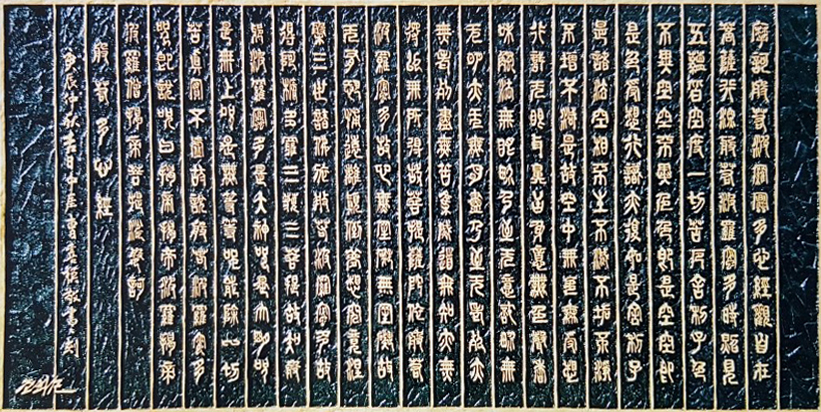 摩訶般若波羅蜜多心經觀自在
菩薩行深般若波羅蜜多時照見
五蘊皆空度一切苦厄舍利子色
不異空空不異色色即是空空即
是色受想行識亦復如是舍利子
是諸法空相不生不滅不垢不淨
不增不減是故空中無色無受想
行識无眼耳鼻舌身意無色聲香
味觸法無眼界乃至无意識界無
无明亦无無明盡乃至无老死亦
無老死盡無苦集滅道無知亦無
得以無所得故菩提薩埵依般若
波羅蜜多故心無罣礙無罣礙故
无有恐怖遠離顛倒夢想究竟涅
槃三世諸佛依般若波羅蜜多故
得阿耨多羅三藐三菩提故知般
若波羅蜜多是大神咒是大明咒
是無上咒是無等等咒能除一切
苦真實不虛故說般若波羅蜜多
咒即說咒曰揭帝揭帝波羅揭帝
波羅僧揭帝菩提薩婆訶
般若多心經
庚辰仲秋吉日中居曹敬書刻